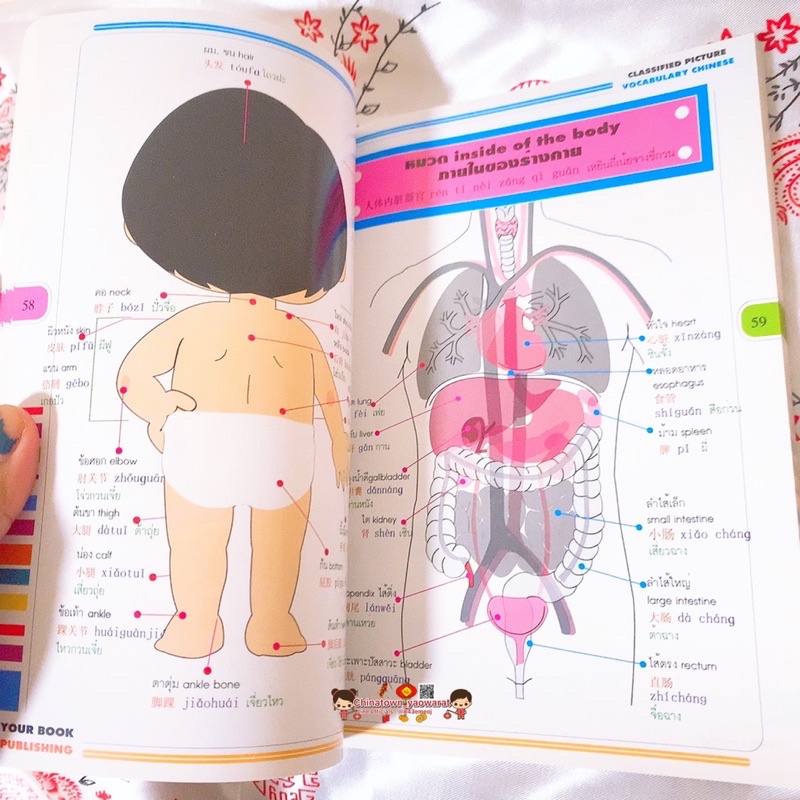 ผม, ขน hair
头发 tóufa โถวฝะ
คอ neck
脖子 bózī ปั๋วจื่อ
ผิวหนัง skin
皮肤 pífū ผีฟู
แขน arm
胳膊 gēbo
เกอปัว
ข้อศอก elbow
肘关节 zhǒuguān
โจ่วกวนเจี๋ย
ต้นขา thigh
大腿 dàtuǐ ต้าถุ่ย
น่อง calf
小腿 xiǎotuǐ
เสี่ยวถุ่ย
ข้อเท้า ankle
踝关节 huáiguānji
ไหวกวนเจี๋ย
ตาตุ่ม ankle bone
脚踝 jiǎohuái เจี่ยวไหว
ก้น bottom
58
YOUR BOOK
PUBLISHING
CLASSIFIED PICTURE
VOCABULARY CHINESE
หมวด inside of the body
ภายในของร่างกาย
人体内脏器官 rén tǐ nèi zàng qì guān เหยินถี่เน่ยจางชี่กวน
lung
fèi เฟ่ย
liver
gān กาน
gallbladder
dǎnnáng
ไต kidney
肾 shèn เซิ่น
appendix ไส้ติ่ง
lánwěi
bladder
pángguāng
หัวใจ heart
心脏 xīnzàng
ซินจั้ง
หลอดอาหาร
esophagus
食管
shíguǎn สือกวน
ม้าม spleen
脾 pí ผี
ลำไส้เล็ก
small intestine
小肠 xiǎo cháng
เสี่ยวฉาง
ลำไส้ใหญ่
large intestine
大肠 dà cháng
ต้าฉาง
ไส้ตรง rectum
直肠
zhícháng
จื๋อฉาง
59
Chinatown_yaowarat